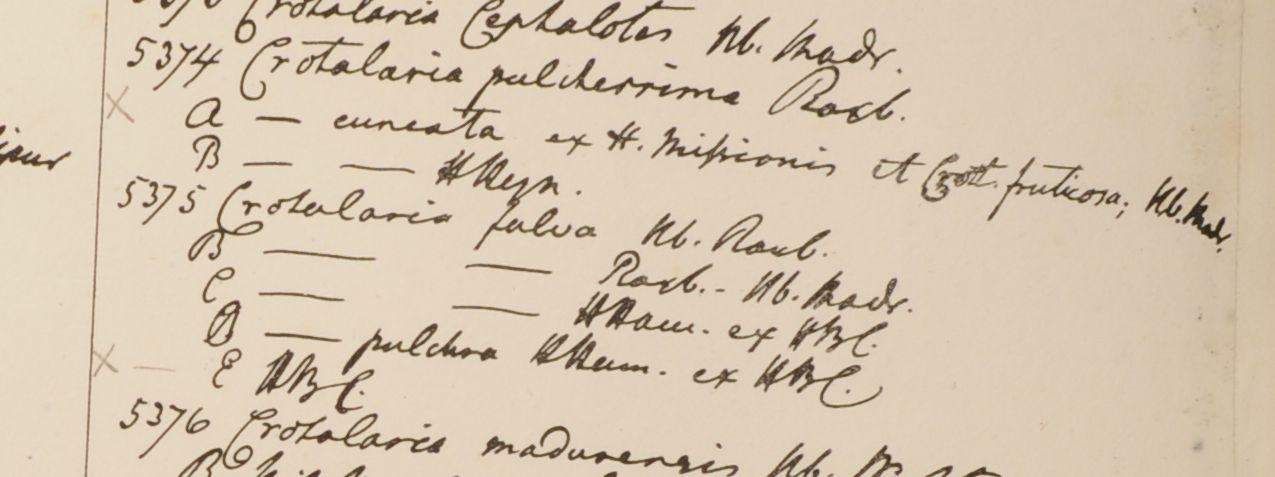 Crotalaria Cephalotes Hb. Madr.
5374 Crotalaria pulcherrima Roxb.
A — cuneata ex H. Missionis et Crot. fruticosa; Hb. Madr.
B — — HHeyn.
5375 Crotalaria fulva Hb. Roxb.
B — — Roxb. - Hb. Madr.
C — — HHam. ex HBC.
D — pulchra HHam. ex HBC.
E HBC.
5376 Crotalaria madurensis Hb.
B